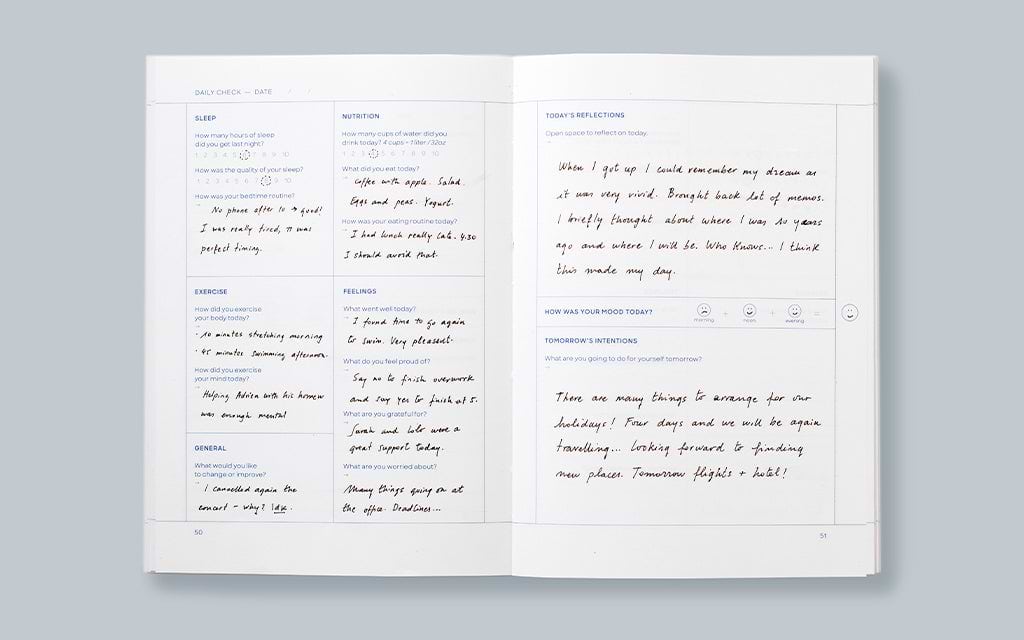 DAILY CHECK — DATE / /
SLEEP
How many hours of sleep
did you get last night?
1 2 3 4 5 6 7 8 9 10
How was the quality of your sleep?
1 2 3 4 5 6 7 8 9 10
How was your bedtime routine?
No phone after 10 → good!
I was really tired, it was
perfect timing.
NUTRITION
How many cups of water did you
drink today? 4 cups = 1 liter / 32oz
1 2 3 4 5 6 7 8 9 10
What did you eat today?
Coffee with apple. Salad.
Eggs and peas. Yogurt.
How was your eating routine today?
I had lunch really late. 4:30
I should avoid that.
EXERCISE
How did you exercise
your body today?
· 10 minutes stretching morning
· 45 minutes swimming afternoon.
How did you exercise
your mind today?
Helping Adrien with his homew
was enough mental
FEELINGS
What went well today?
I found time to go again
to swim. Very pleasent.
What do you feel proud of?
Say no to finish overwork
and say yes to finish at 5.
What are you grateful for?
Sarah and Lolo were a
great support today.
What are you worried about?
Many things going on at
the office. Deadlines...
GENERAL
What would you like
to change or improve?
I cancelled again the
concert – why? Idk.
50
TODAY'S REFLECTIONS
Open space to reflect on today.
When I got up I could remember my dream as
it was very vivid. Brought back lot of memos.
I briefly thought about where I was 10 years
ago and where I will be. Who knows... I think
this made my day.
HOW WAS YOUR MOOD TODAY?
morning + noon + evening =
TOMORROW'S INTENTIONS
What are you going to do for yourself tomorrow?
There are many things to arrange for our
holidays! Four days and we will be again
travelling... Looking forward to finding
new places. Tomorrow flights + hotel!
51